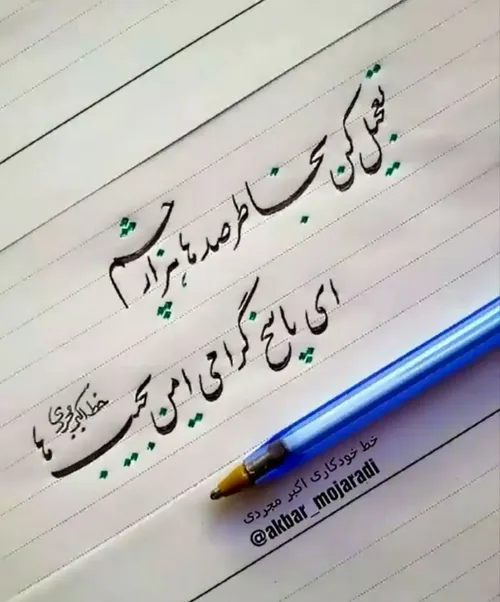 تعجیل کن بخاطر صدها هزار چشم
ای پاسخ گرامی امن یجیب ها
خط اکبر مجردی
خط خودکاری اکبر مجردی
@akbar_mojaradi